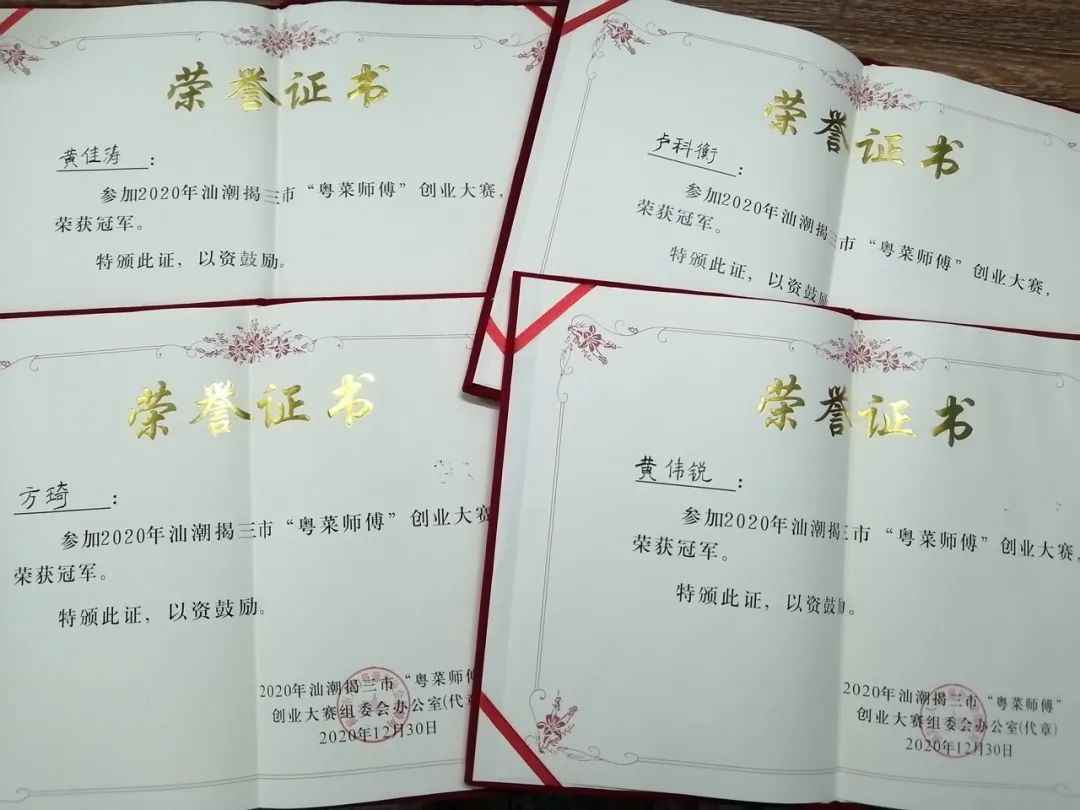 荣誉证书
黄佳涛：
参加2020年汕潮揭三市“粤菜师傅”创业大赛，
荣获冠军。
特颁此证，以资鼓励。
荣誉证书
卢科衡：
参加2020年汕潮揭三市“粤菜师傅”创业大赛，
荣获冠军。
特颁此证，以资鼓励
荣誉证书
方琦：
参加2020年汕潮揭三市“粤菜师傅”创业大赛
荣获冠军。
特颁此证，以资鼓励。
2020年汕潮揭三市“粤菜师傅
创业大赛组委会办公室(代章
2020年12月30日
荣誉证书
黄伟锐：
参加2020年汕潮揭三市“粤菜师傅”创业大赛，
荣获冠军。
特颁此证，以资鼓励。
2020年汕潮揭三市“粤菜师傅”
创业大赛组委会办公室(代章)
2020年12月30日